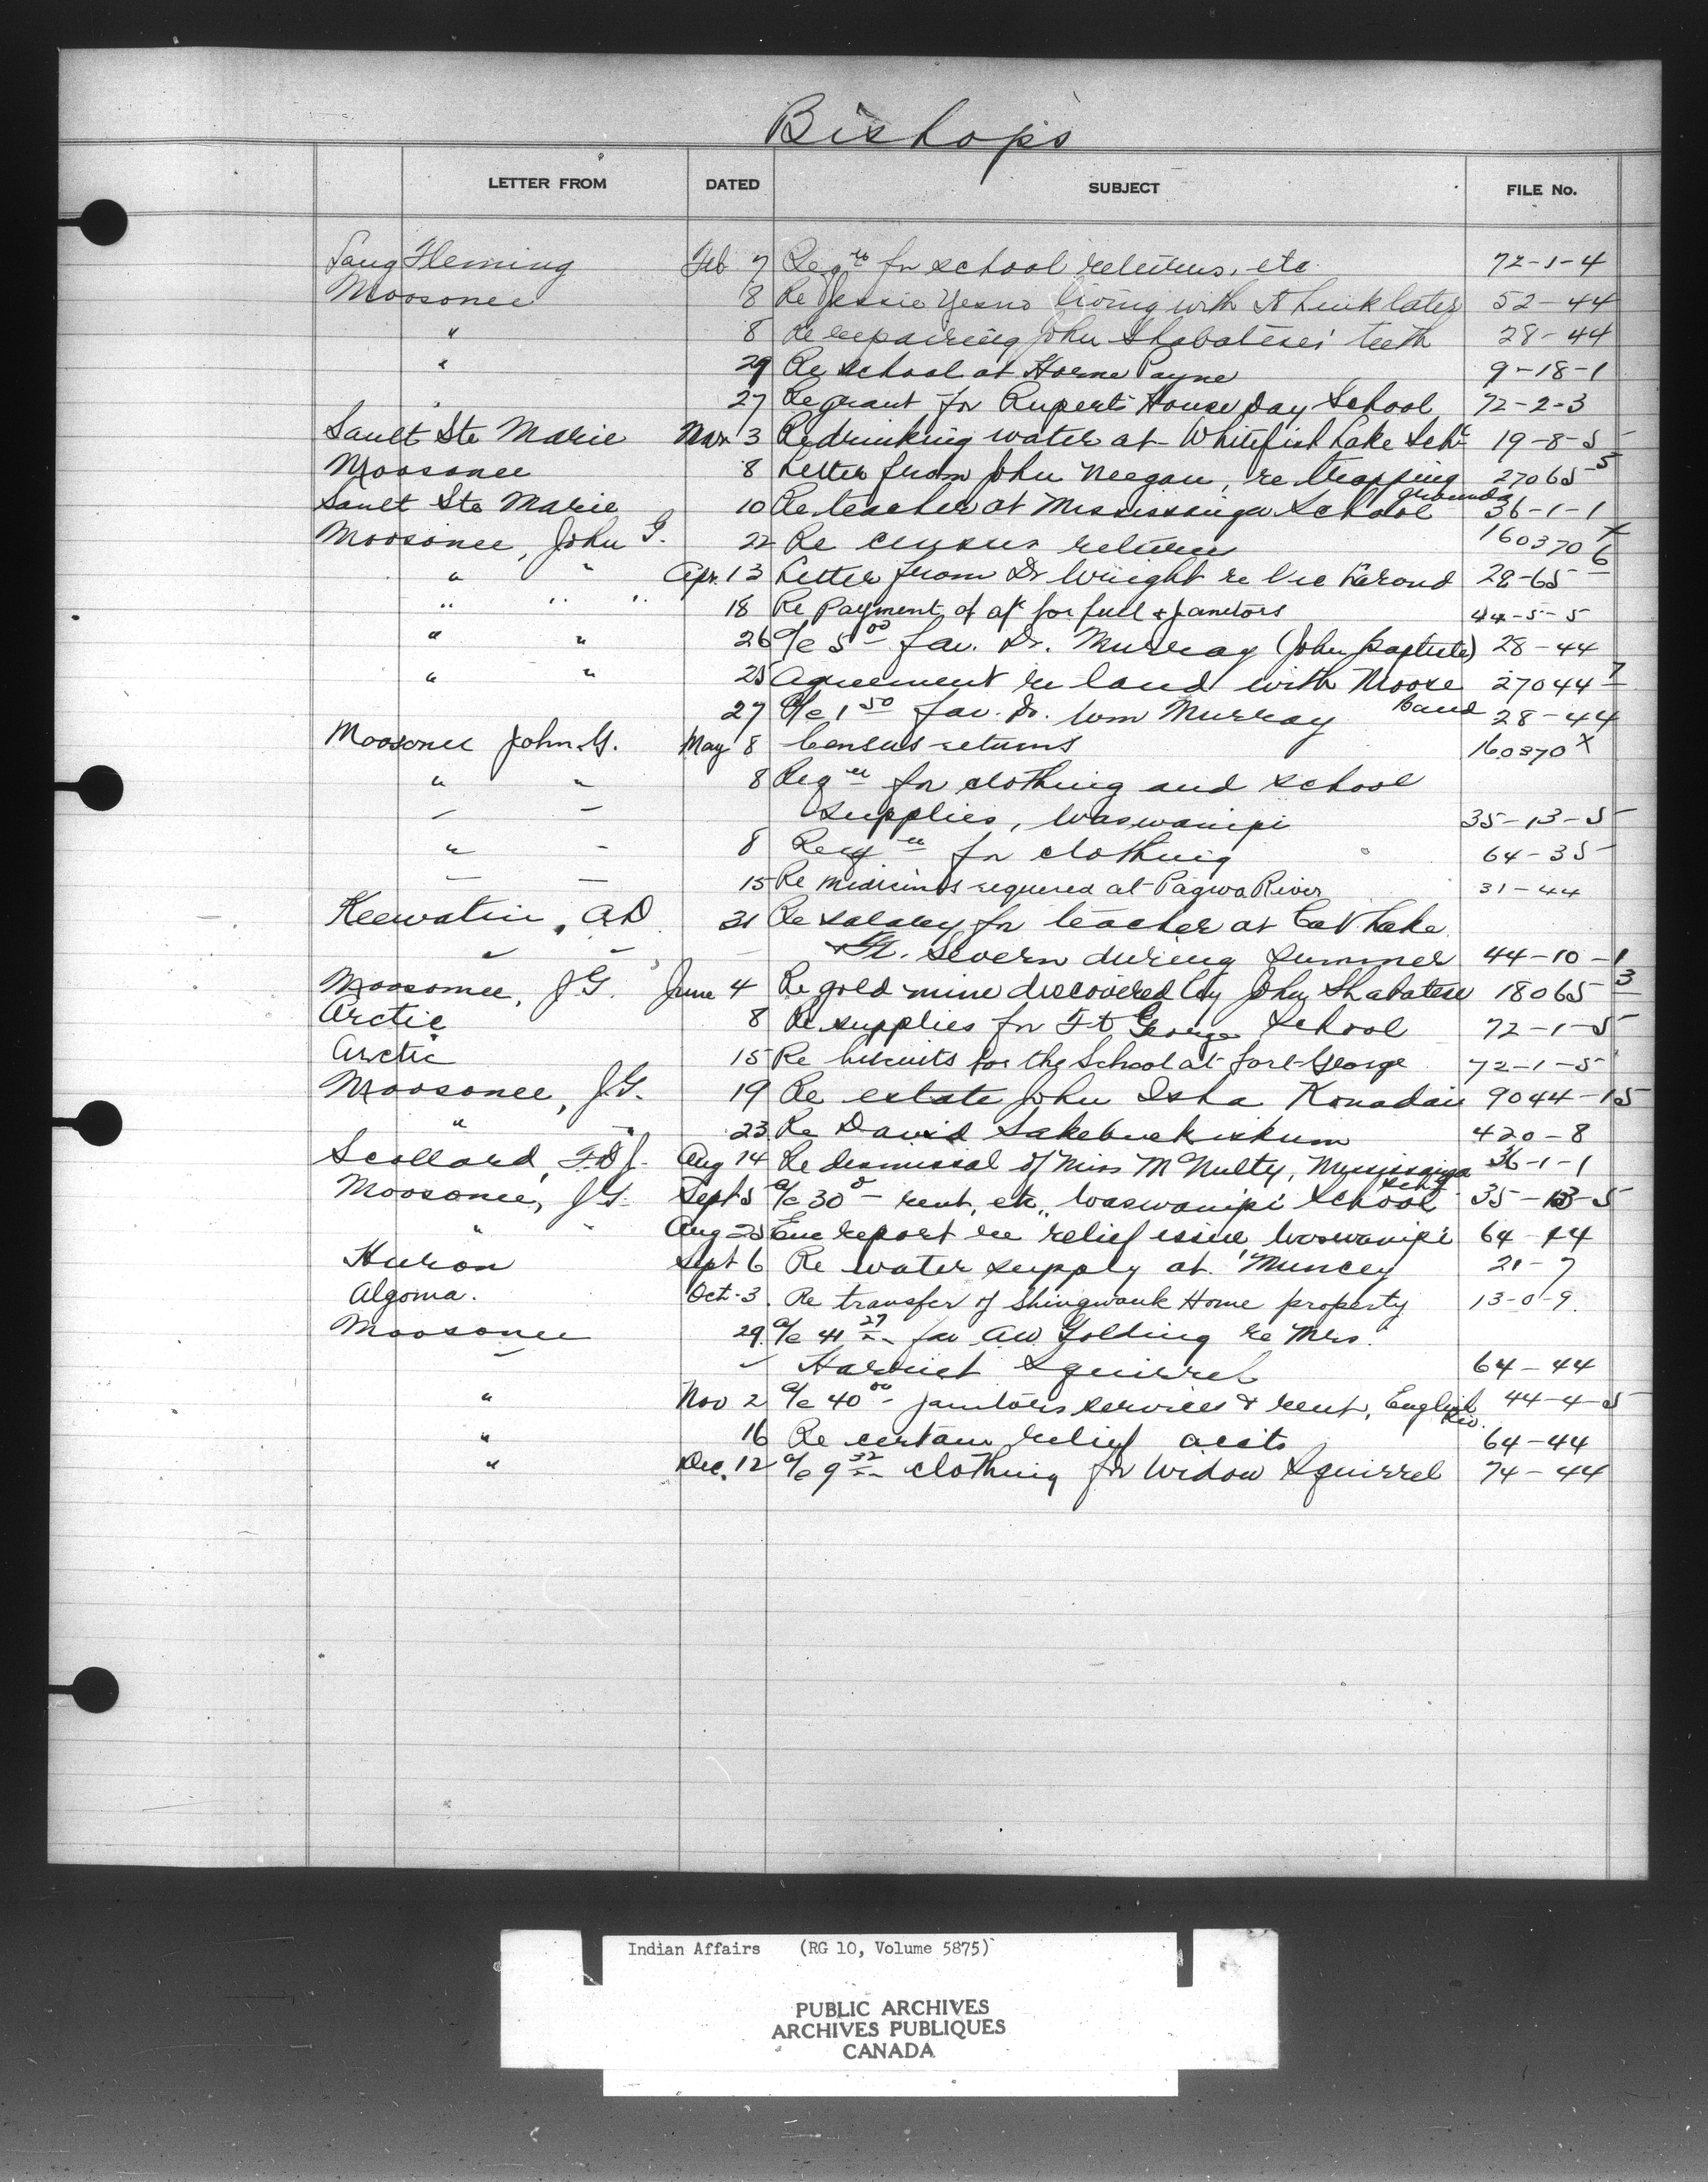 Bishops
LETTER FROM DATED SUBJECT FILE No.
Fleming Feb 7 Reqn for school returns, etc 72-1-4
Moosonee 8 Re Jessie Yesno living with 52-44
" 8 Re repairing John Shabatese's teeth 28-44
" 29 Re school at Horne Payne 9-18-1
27 Re grant for Rupert's House Day School 72-2-3
Sault Ste Marie Mar 3 Re drinking water at Whitefish Lake Schl 19-8-5
Moosonee 8 Letter from John Neegan, re trapping grounds 27065-5
Sault Ste Marie 10 Re teacher at Mississauga School 36-1-1
Moosonee, John G. 22 Re census returns 160370 X
" " Apr. 13 Letter from Dr Wright re Vic 28-65 6
" " " 18 Re Payment of a/c for fuel & janitors 44-5-5
" " 26 a/c 5 00 fav. Dr. Murray (John Baptiste) 28-44
" " 25 Agreement re land with Moose Band 27044-7
27 a/c 1 50 fav. Dr. Wm Murray 28-44
Moosonee John G. May 8 Census returns 160370 X
" " 8 Reqn for clothing and school
" " supplies, Waswanipi 35-13-5
" " 8 Reqn for clothing 64-35
" " 15 Re medicines required at Pagwa River 31-44
Keewatin, A.D 31 Re salary for teacher at Cat Lake
" " & Ft. Severn during Summer 44-10-1
Moosonee, J.G. June 4 Re gold mine discovered by John Shabatese 18065-3
Arctic 8 Re supplies for Ft George School 72-1-5
Arctic 15 Re biscuits for the School at Fort George 72-1-5
Moosonee, J.G. 19 Re estate John Isha 9044-15
" " 23 Re David 420-8
Scollard, F.D.J. Aug 14 Re dismissal of Miss McNulty, Mississaiga Schl 36-1-1
Moosonee, J.G. Sept 5 a/c 30 0 - rent, etc., Waswanipi School 35-13-5
" " Aug 25 Enc report re relief issue Waswanipi 64-44
Huron Sept 6 Re water supply at Muncey 21-7
Algoma. Oct. 3. Re transfer of Shingwauk Home property 13-0-9
Moosonee 29. a/c 41 27 fav A.W Golding re Mrs.
" " Harriet Squirrel 64-44
" Nov 2 a/c 40 00 - janitors services & rent, English Riv. 44-4-5
" 16 Re certain relief accts 64-44
" Dec. 12 a/c 9 32 clothing for Widow Squirrel 74-44
Indian Affairs (RG 10, Volume 5875)
PUBLIC ARCHIVES
ARCHIVES PUBLIQUES
CANADA